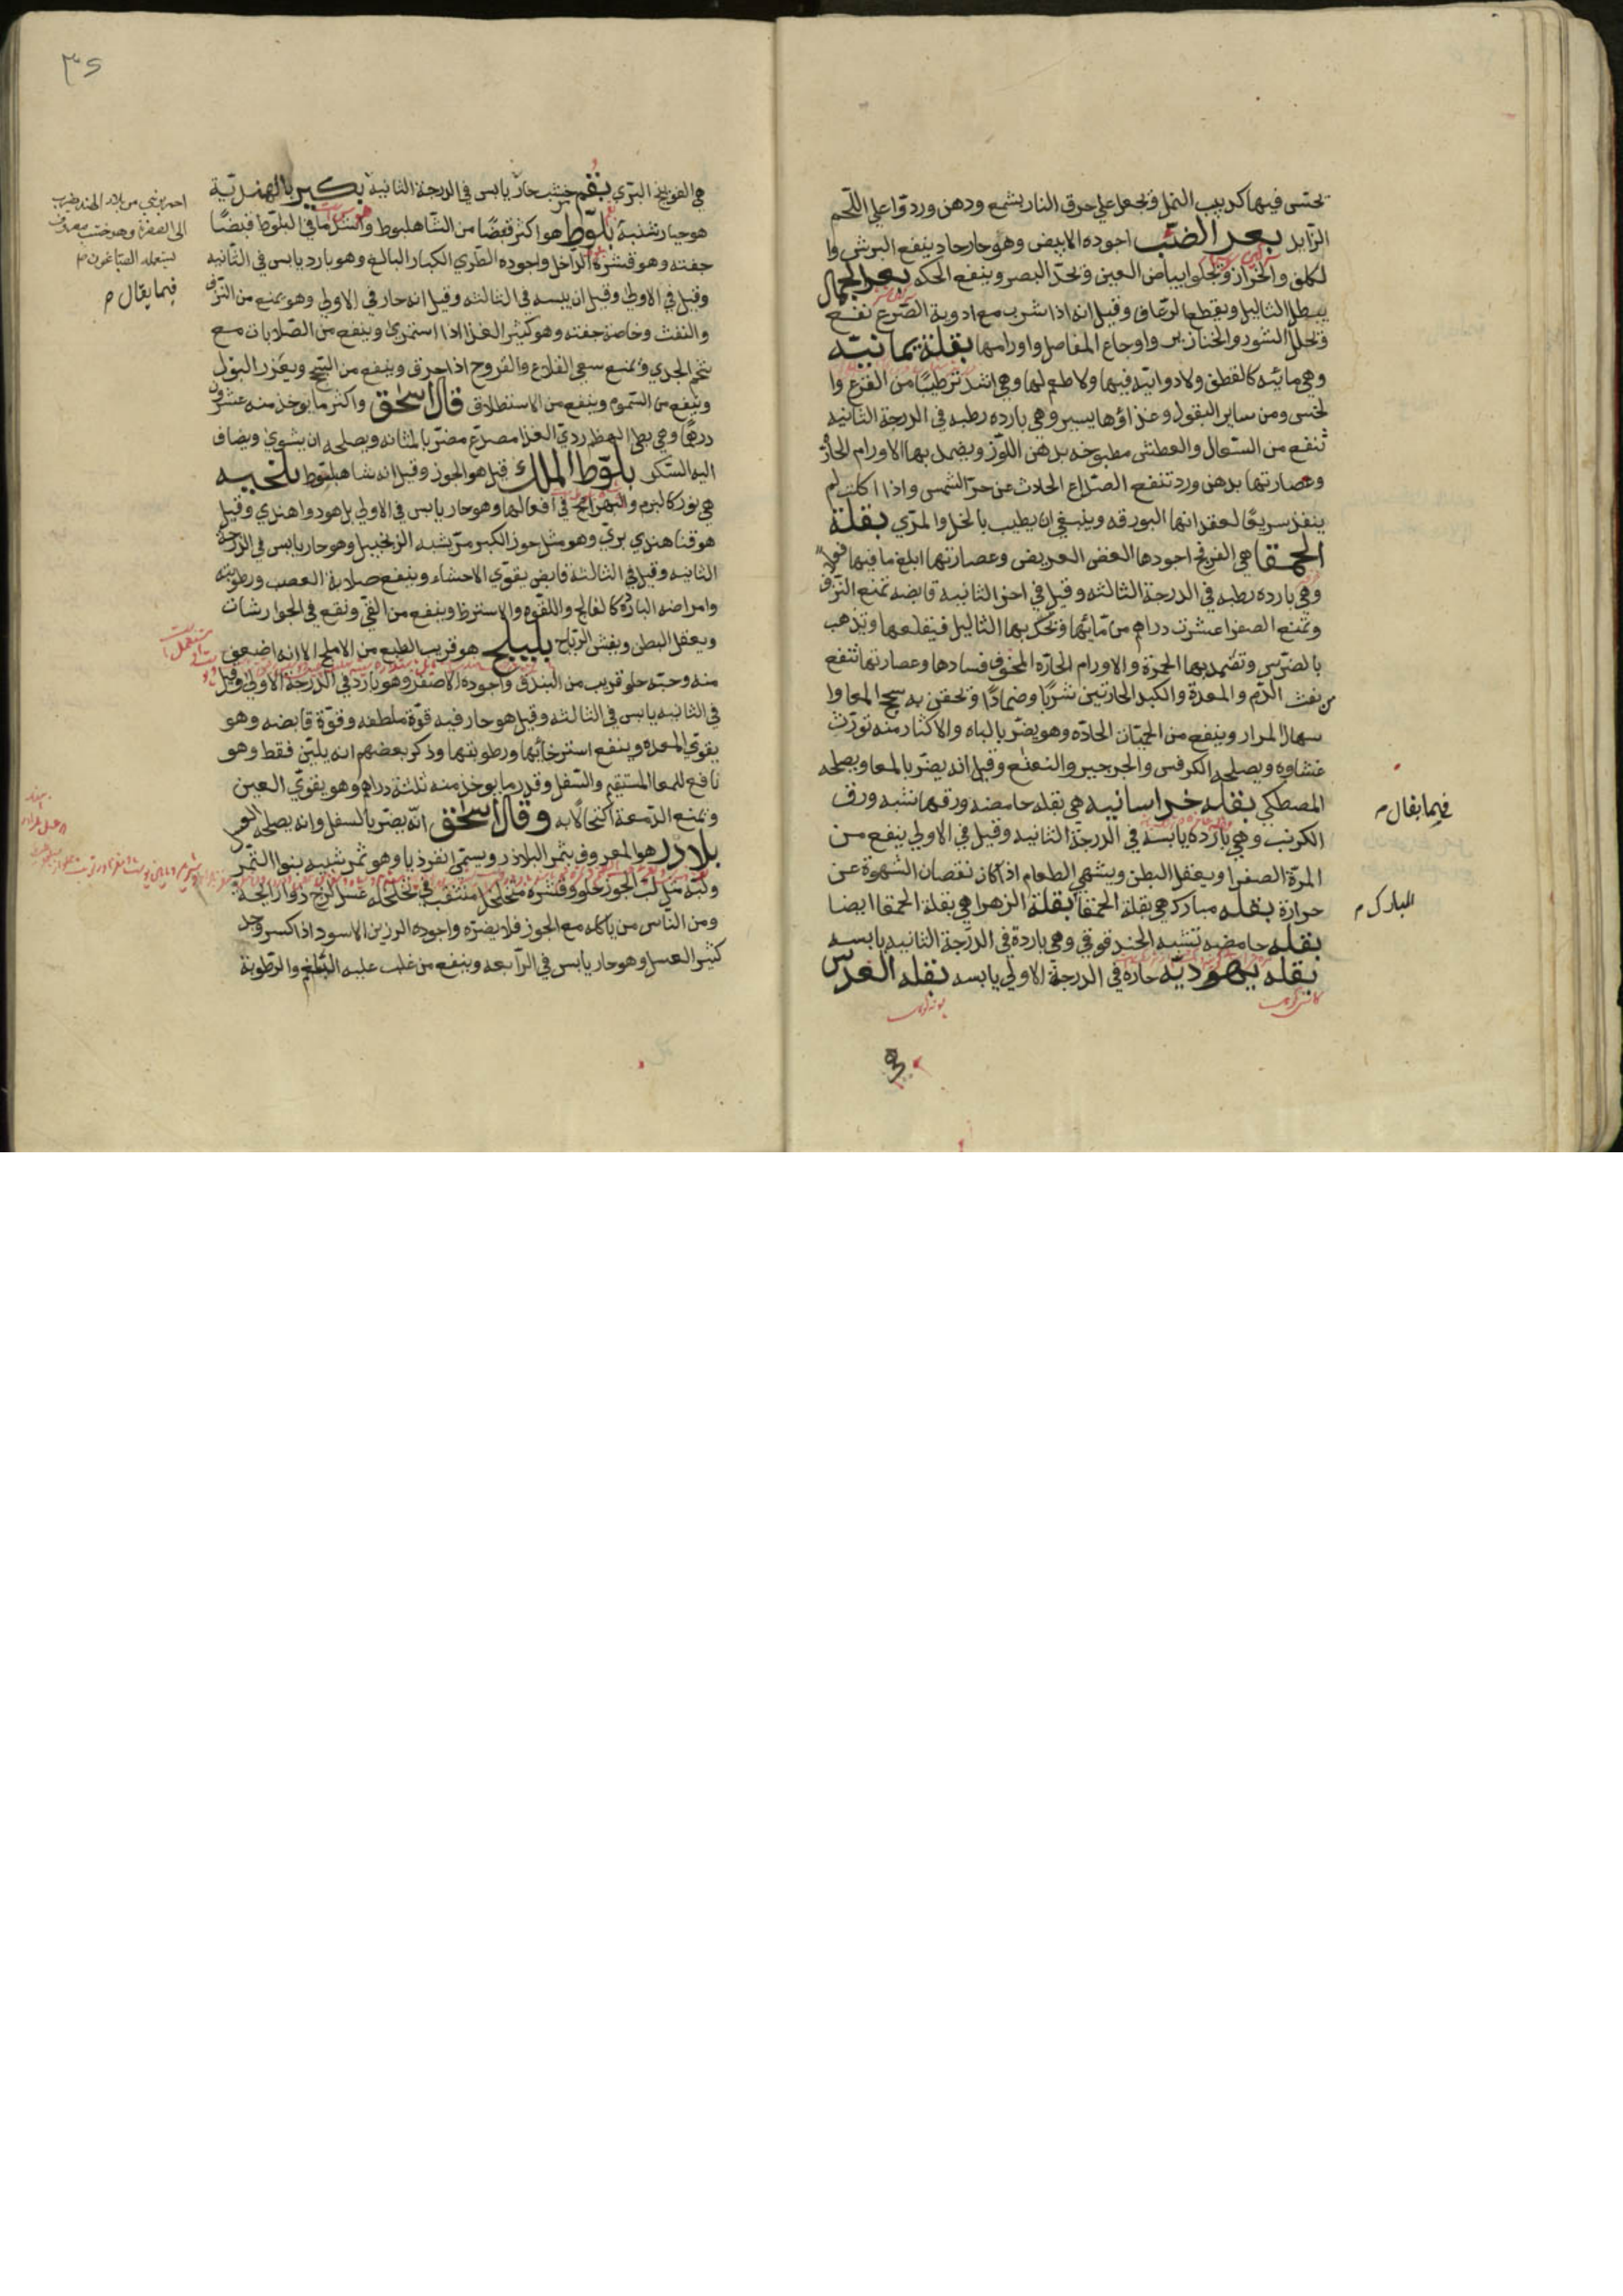 تحتسى فيها كدبيب النمل وتجعل علي حرق النار بشمع ودهن ورد واعلي اللحم
الزايد بعر الضب اجوده الابيض وهو حار حاد ينفع البرش وا
لكلف والحزاز وتجلوا بياض العين وتحد البصر وينفع الحكه بعر الجمال
يبطل الثاليل ويقطع الرعاف وقيل انه اذا شرب مع ادوية الصرع نفع
وتحلل البثور والخنازير واوجاع المفاصل واورامها بقلة يمانيه
وهي مائيه كالقطف ولا دوائيه فيها ولا طعم لها وهي اشد ترطيبا من القرع وا
لخس ومن ساير البقول وغذاؤها يسير وهي بارده رطبه في الدرجة الثانيه
تنفع من السعال والعطش مطبوخه بدهن اللوز ويضمد بها الاورام الحاره
وعصارتها بدهن ورد تنفع الصداع الحادث عن حر الشمس واذا اكلت لم
ينفذ سريعا لفقدانها البورقه وينبغي ان يطيب بالخل والمري بقلة
الحمقا هي الفرفخ اجودها الغض العريض وعصارتها ابلغ ما فيها فعلا
وهي بارده رطبه في الدرجة الثالثه وقيل في اخر الثانيه قابضه تمنع النزف
وتمنع الصفرا عشرت دراهم من مائها وتحك بها الثاليل فيقلعها ويذهب
بالضرس وتضمد بها الجمرة والاورام الحاره المخوف فسادها وعصارتها تنفع
من نفث الدم والمعدة والكبد الحارتين شربا وضمادا وتحقن به سحج المعا وا
سهال المرار وينفع من الحميات الحاده وهو يضر بالباه والاكثار منه تورث
غشاوه ويصلحه الكرفس والجرجير والنعنع وقيل انه يضر بالمعا ويصلحه
المصطكي بقله خراسانيه هي بقله حامضه ورقها تشبه ورق
الكرنب وهي بارده يابسه في الدرجة الثانيه وقيل في الاولي ينفع من
المرة الصفرا ويعقل البطن ويشهي الطعام اذا كان نقصان الشهوة عن
حرارة بقله مباركه هي بقلة الحمقا بقلة الزهرا هي بقلة الحمقا ايضا
بقله حامضه تشبه الحندقوقي وهي باردة في الدرجة الثانيه يابسه
بقله يهوديه حاره في الدرجة الاولي يابسه بقله العدس
فيما يقال م
المبارك م
٣٥
هي الفوتنج البري بقم خشب حار يابس في الدرجة الثانية بكسير بالهندية
هو خيار شنبه بلوط هو اكثر قبضا من الشاهبلوط واشد ما في البلوط قبضا
جفته وهو قشره الداخل واجوده الطري الكبار البالغ وهو بارد يابس في الثانيه
وقيل في الاولي وقيل ان يبسه في الثالثه وقيل انه حار في الاولي وهو يمنع من النزف
والنفث وخاصة جفته وهو كثير الغذا اذا استمري وينفع من الصلابات مع
شحم الجدي ويمنع سعي القلاع والقروح اذا احرق وينفع من السحج ويغزر البول
وينفع من السموم وينفع من الاستطلاق قال اسحق واكثر ما يوخذ منه عشرون
درهما وهي بطي الهضم ردي الغذا مصدع مضر بالمثانه ويصلحه ان يشوي ويضاف
اليه السكر بلوط الملك قيل هو الجوز وقيل انه شاهبلوط بلخيه
هي نور كالبزم والبهرامج في افعالها وهو حار يابس في الاولي بل هو دوا هندي وقيل
هو قثا هندي بري وهو مثل جوز الكبر مر يشبه الزنجبيل وهو حار يابس في الدرجة
الثانيه وقيل في الثالثة قابض يقوي الاحشاء وينفع صلابة العصب ورطوبته
وامراضه الباردة كالفالج واللقوه والاسترخا وينفع من القي ونقع في الجوارشات
ويعقل البطن ويفش الرياح بليلج هو قريب الطبع من الاملج الا انه اضعف
منه وحبه حلو قريب من البندق واجوده الاصفر وهو بارد في الدرجة الاولي وقيل
في الثانيه يابس في الثالثه وقيل هو حار فيه قوة ملطفه وقوة قابضه وهو
يقوي المعده وينفع استرخائها ورطوبتها وذكر بعضهم انه يلين فقط وهو
نافع للمعا المستقيم والسفل وقدر ما يوخذ منه ثلثة دراهم وهو يقوي العين
وتمنع الدمعة اكتحالا به وقال اسحق انه يضر بالسفل وانه يصلحه الورد
بلادر هو المعروف بثمر البلاذر ويسمي انقرذيا وهو ثمر شبيه بنوا التمر
ولبه مثل لب الجوز حلو وقشره متخلخل متثقب في تخلخله عسل لزج ذو رايحة
ومن الناس من ياكله مع الجوز فلا يضره واجوده الرزين الاسود اذا كسر وجد
كثير العسل وهو حار يابس في الرابعه وينفع من غلب عليه البلغم والرطوبة
احمر يجي من بلاد الهند يضرب
الى الصفرة وهو خشب معروف
يستعمله الصباغون م
فيما يقال م